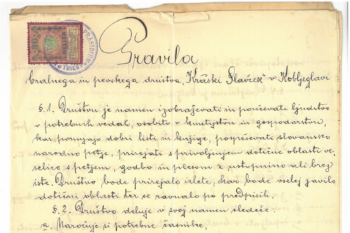 Pravila
bralnega in pevskega društva „Kraški Slavček" v Kobljeglavi
§ 1. Društvu je namen izobraževati in podučevati ljudstvo
v potrebnih vedah, osobito v kmetijstvu in gospodarstvu,
kar pomagajo dobri listi in knjige, pospeševati slovansko
narodno petje, prirejati s privoljenjem dotične oblasti ve-
selice s petjem, godbo in plesom z ustopnino ali brez
iste. Društvo bode prirejalo izlete, kar bode vselej javilo
dotični oblasti ter se ravnalo po predpisih.
§ 2. Društvo deluje v svoj namen sledeče
Naročuje si potrebne časnike,